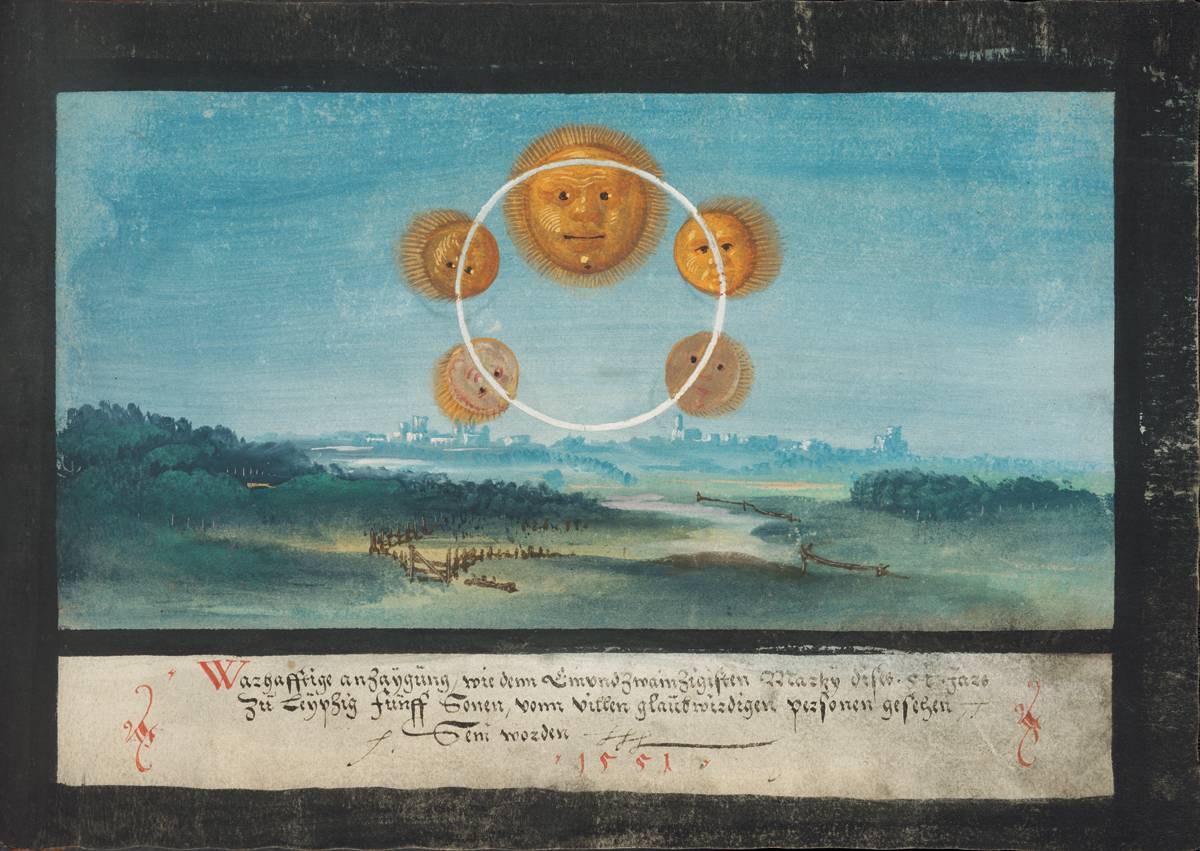 Warhafftige anzaygüng, wie denn Einundzwainzigisten Marzÿ dises. 51. Jars
Zü Leÿpzig fünff Sonen, vonn villen glaubwirdigen personen gesehen
Sein worden
1551